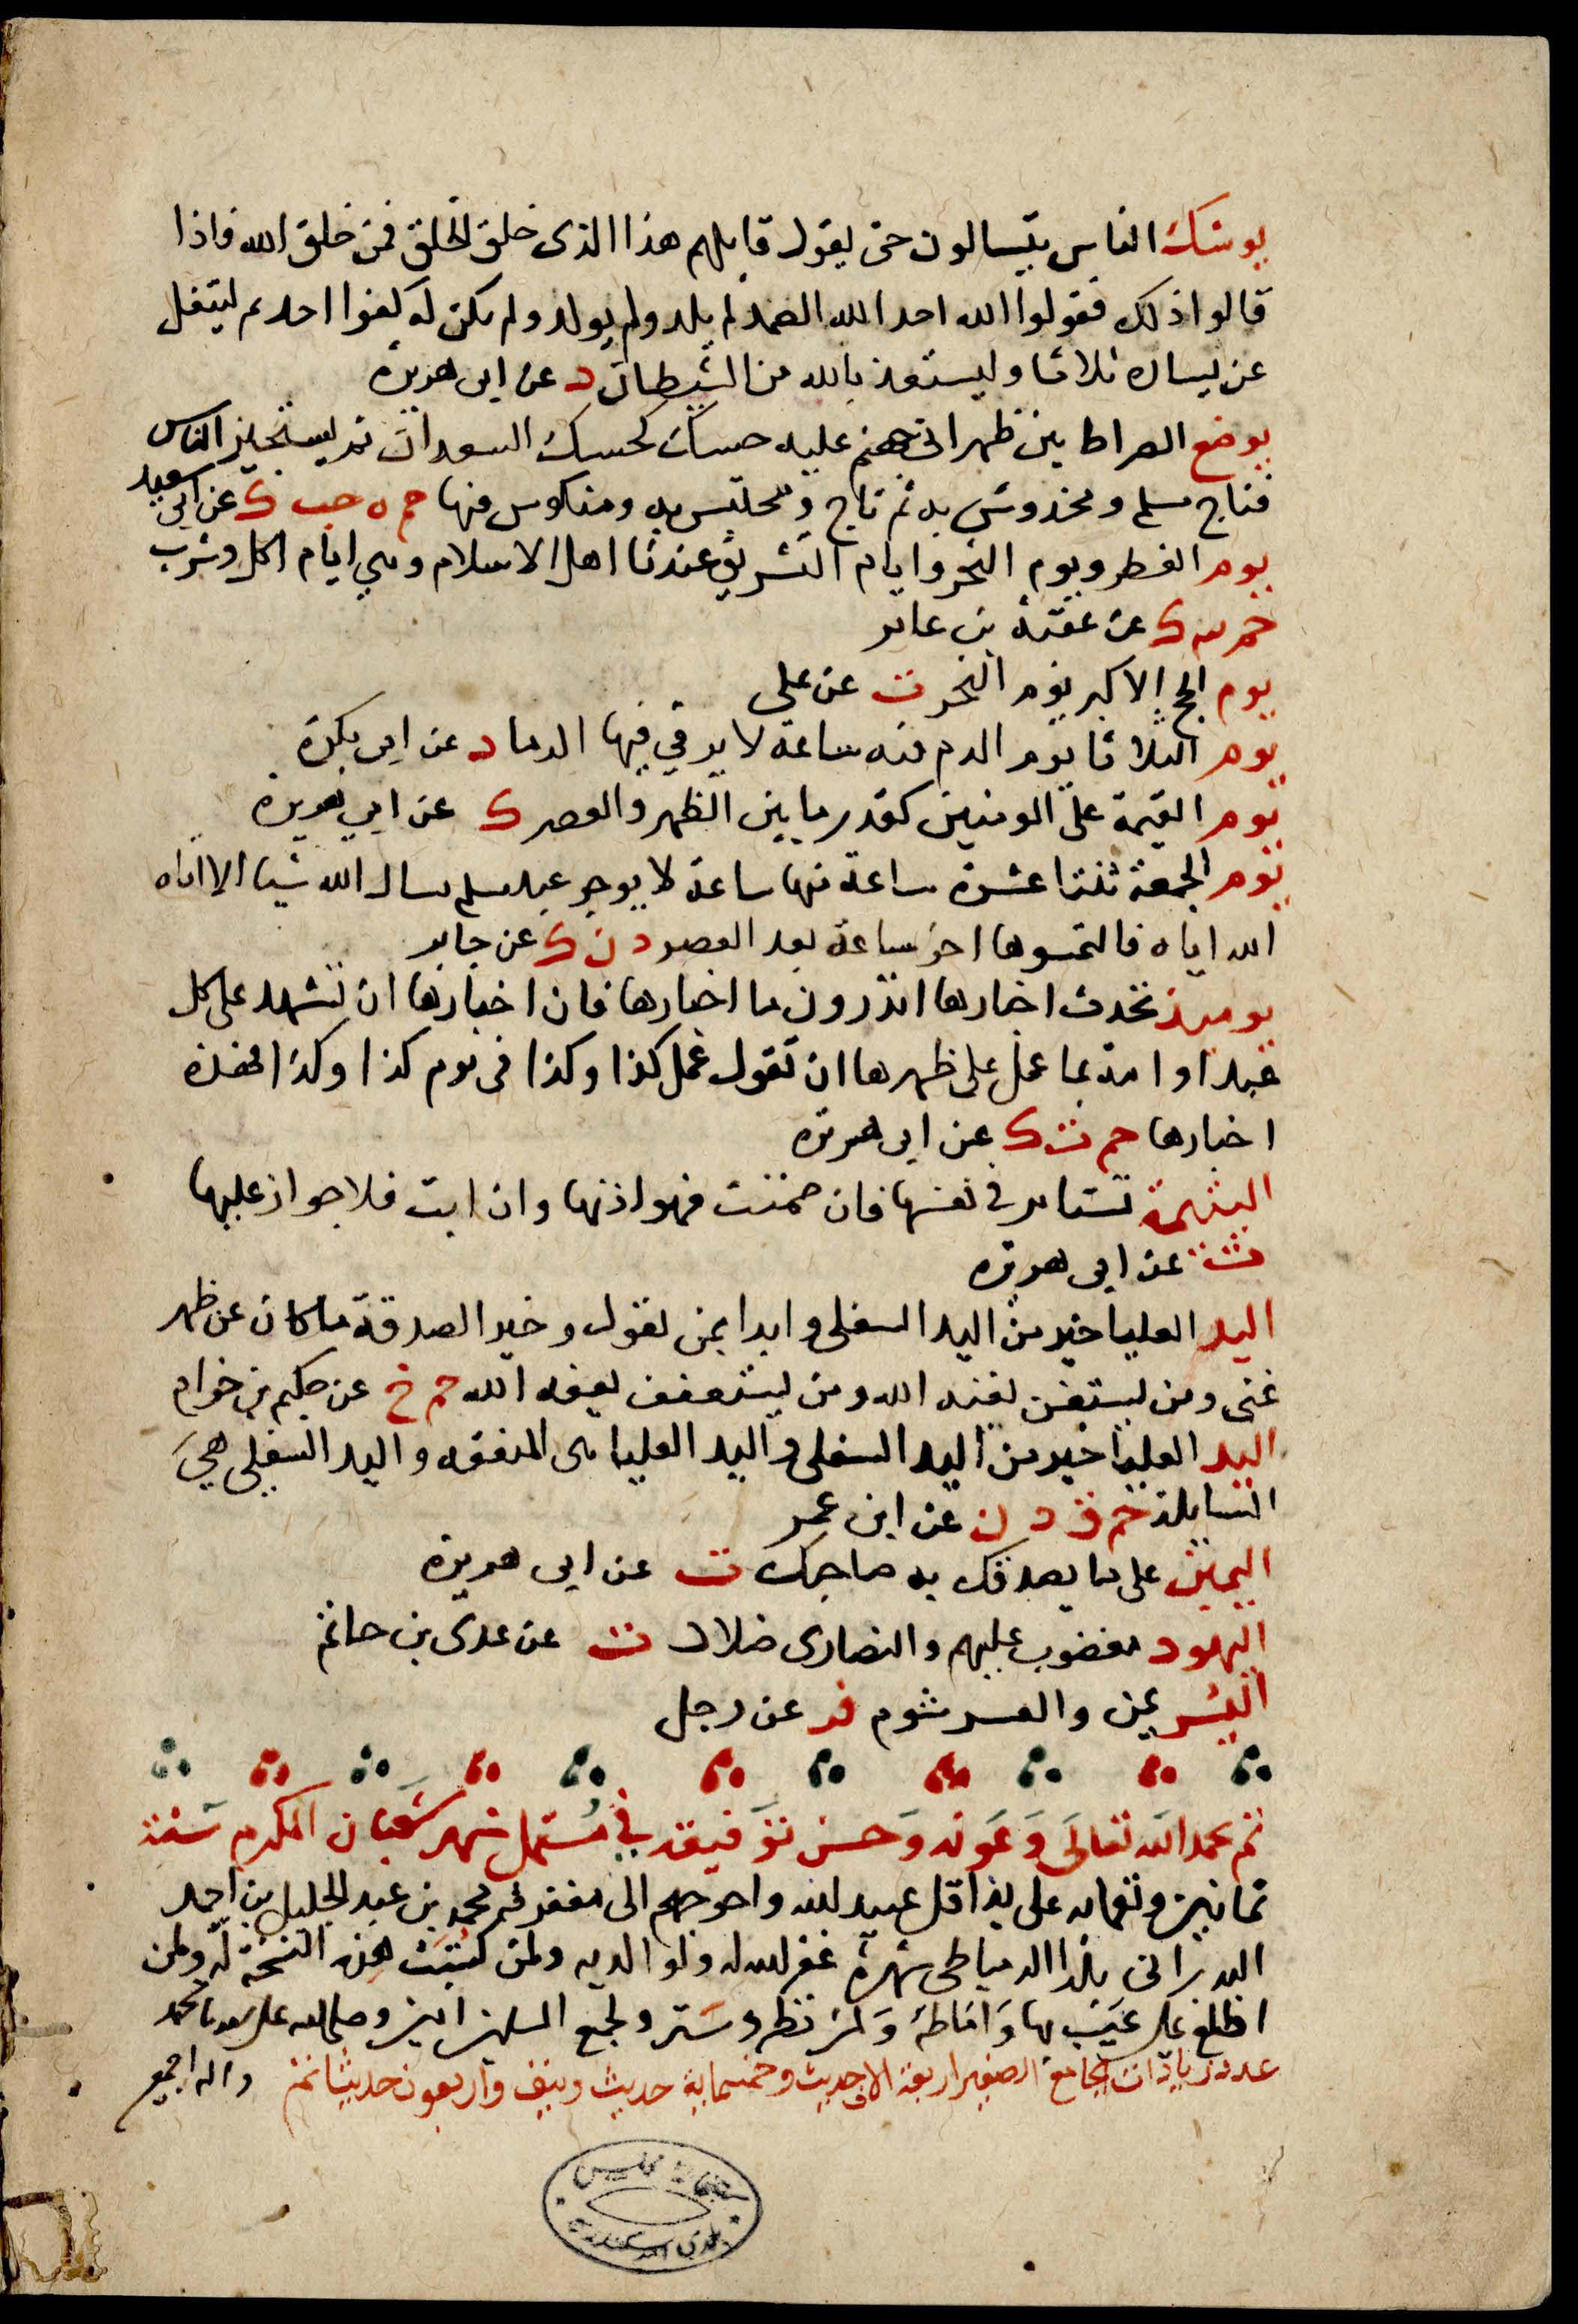 يوشك الناس يتسالون حتى يقول قايلهم هذا الذى خلق الخلق فمن خلق الله فاذا
قالوا ذلك فقولوا الله احد الله الصمد لم يلد ولم يولد ولم يكن له كفوا احد ثم ليتفل
عن يساره ثلاثا وليستعذ بالله من الشيطان د عن ابى هريرة
يوضع الصراط بين ظهرانى جهنم عليه حسك كحسك السعدان ثم يستجيز الناس
فناج مسلم ومخدوش به ثم ناج ومحتبس به ومنكوس فيها حم ه حب ك عن ابى سعيد
يوم الفطر ويوم النحر وايام التشريق عيدنا اهل الاسلام وهي ايام اكل وشرب
حم ٣ ك عن عقبة بن عامر
يوم الحج الاكبر يوم النحر ت عن على
يوم الثلاثا يوم الدم فيه ساعة لا يرقي فيها الدما د عن ابى بكرة
يوم القيمة على المومنين كقدر ما بين الظهر والعصر ك عن ابي هريرة
يوم الجمعة ثنتا عشرة ساعة منها ساعة لا يوجد عبد مسلم يسال الله شيا الا اتاه
الله اياه فالتمسوها اخر ساعة بعد العصر د ن ك عن جابر
يوميذ تحدث اخبارها اتدرون ما اخبارها فان اخبارها ان تشهد على كل
عبد او امة بما عمل على ظهرها ان تقول عمل كذا وكذا فى يوم كذا وكذا فهذه
اخبارها حم ت ك عن ابى هريرة
اليتيمة تستامر فى نفسها فان صمتت فهو اذنها وان ابت فلا جواز عليها
ت عن ابى هريرة
اليد العليا خير من اليد السفلى وابدا بمن تعول وخير الصدقة ما كان عن ظهر
غنى ومن يستغن يغنه الله ومن يستعفف يعفه الله حم خ عن حكيم بن حزام
اليد العليا خير من اليد السفلى واليد العليا هى المنفقه واليد السفلى هي
السايلة حم ق د ن عن ابن عمر
اليمين على ما يصدقك به صاحبك ت عن ابى هريرة
اليهود مغضوب عليهم والنصارى ضلال ت عن عدى بن حاتم
اليسر يمن والعسر شوم فر عن رجل
تم بحمد الله تعالى وعونه وحسن توفيقه في مستهل شهر شعبان المكرم سنة
ثمانين وثمانمايه على يد اقل عبيد الله واحوجهم الى مغفرته محمد بن عبد الجليل بن احمد
بلدا الدمياطى شهرة غفر الله له ولوالديه ولمن كتبت هذه النسخة له ولمن
اطلع على عيب بها واماطه ولمن نظر وستر ولجميع المسلمين امين وصلى الله على سيدنا محمد
عدد زيادات الجامع الصغير اربعة الاف حديث وخمسماية حديث ونيف واربعون حديثا تم واله اجمعين